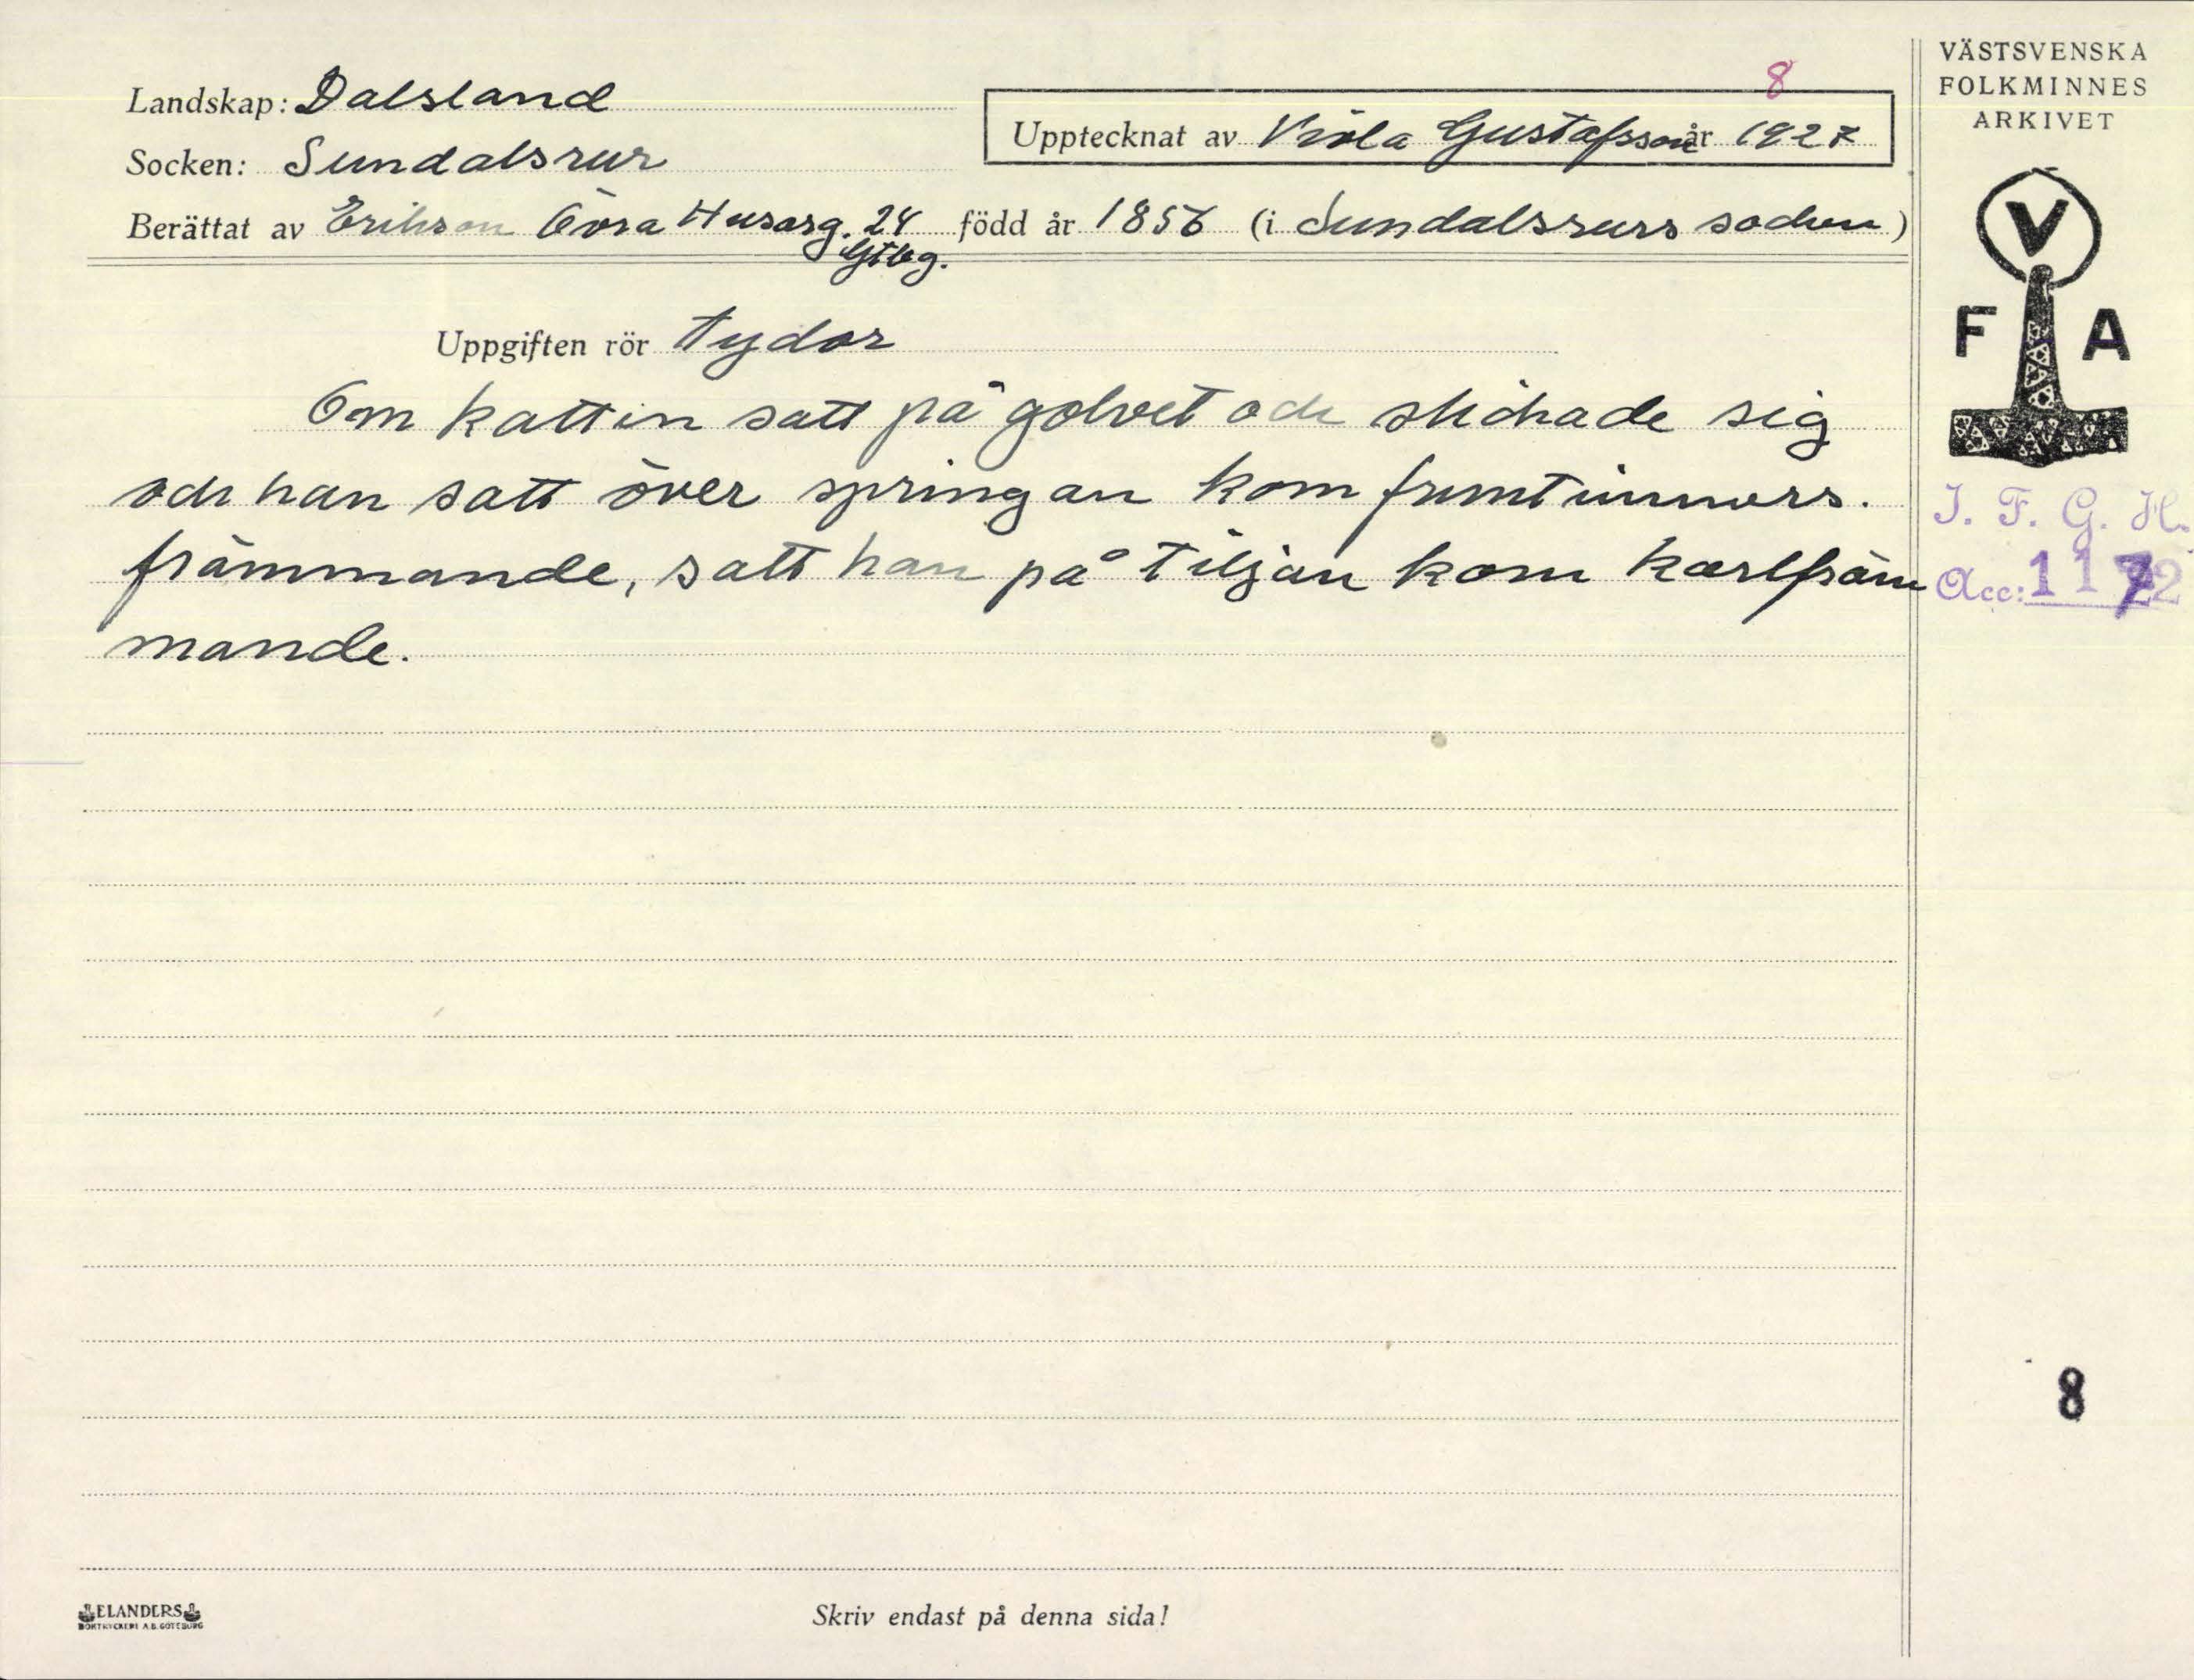 Landskap: Dalsland
Socken: Sundalsrur
Upptecknat av Viola Gustafsson år 1927
8
Berättat av Erikson Övra Husarg. 24 född år 1856 (i Sundalsrurs socken)
Gtbg.
Uppgiften rör Tydor
Om kattin satt på golvet och skökade sig
och han satt över springan kom fruntimmers.
främmande, satt han på tiljan kom karlfräm
mande.
VÄSTSVENSKA
FOLKMINNES
ARKIVET
V
F A
I. F. G. H.
Acc: 1172
8
ELANDERS
BOKTRYCKERI A.B. GÖTEBORG
Skriv endast på denna sida!